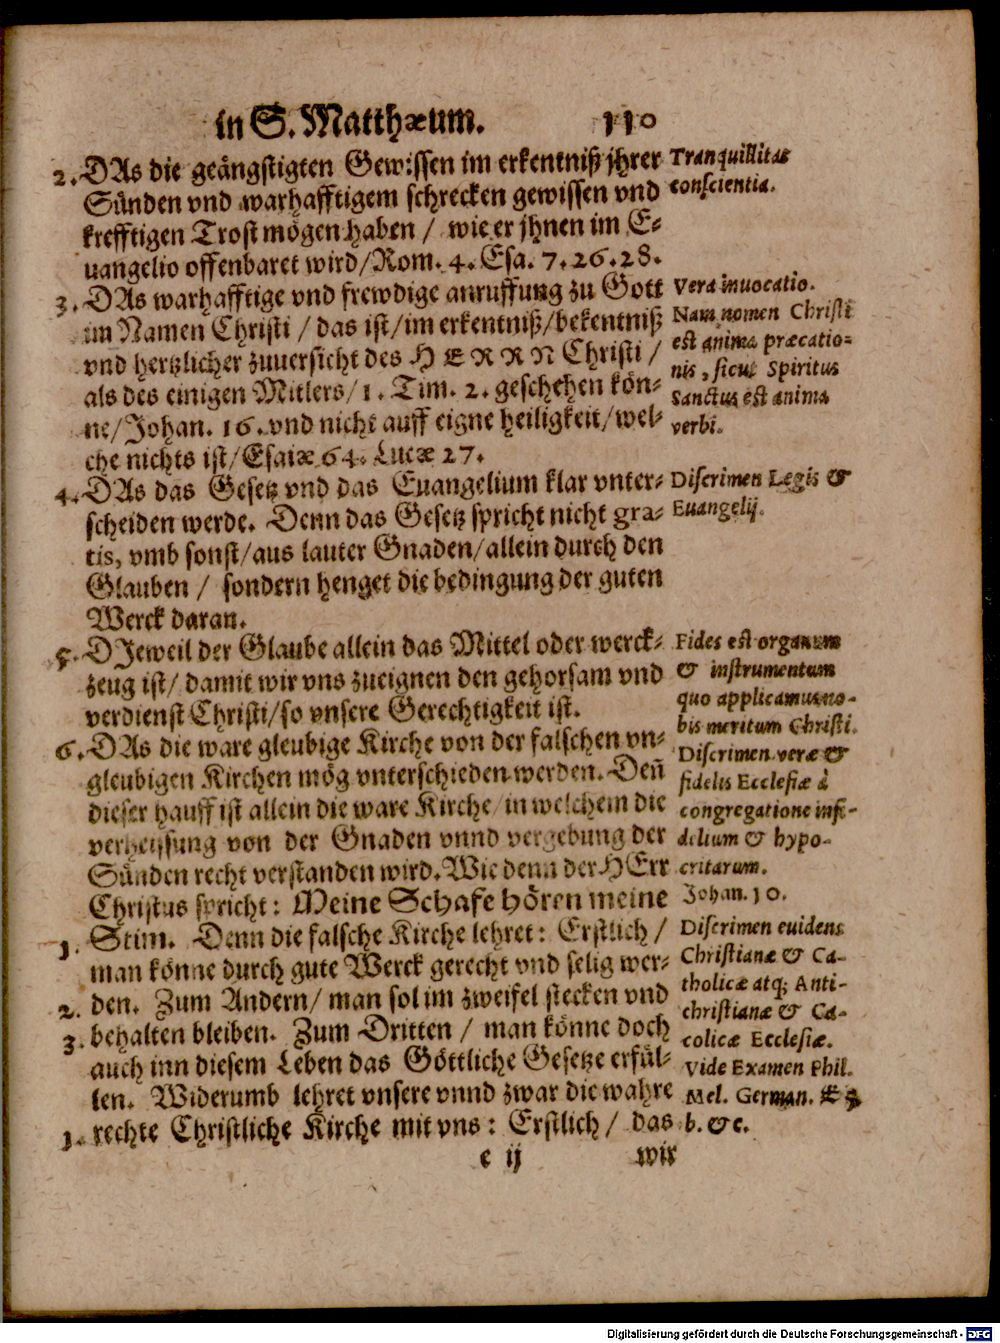 in S. Matthæum. 110
2. DAs die geängstigten Gewissen im erkentniß jhrer
Sünden vnd warhafftigem schrecken gewissen vnd
krefftigen Trost mögen haben / wie er jhnen im E-
uangelio offenbaret wird/Rom. 4. Esa. 7. 26. 28.
Tranquillitas
conscientiæ.
3. DAs warhafftige vnd frewdige anruffung zu Gott
im Namen Christi / das ist/im erkentniß/bekentniß
vnd hertzlicher zuuersicht des HERRN Christi /
als des einigen Mitlers/1. Tim. 2. geschehen kön-
ne/Johan. 16. vnd nicht auff eigne heiligkeit/wel-
che nichts ist/Esaiæ 64. Lucæ 27.
Vera inuocatio.
Nam nomen Christi
est anima præcatio-
nis, sicut Spiritus
Sanctus est anima
verbi.
4. DAs das Gesetz vnd das Euangelium klar vnter-
scheiden werde. Denn das Gesetz spricht nicht gra-
tis, vmb sonst/aus lauter Gnaden/allein durch den
Glauben / sondern henget die bedingung der guten
Werck daran.
Discrimen Legis &
Euangelij.
5. DJeweil der Glaube allein das Mittel oder werck-
zeug ist/ damit wir vns zueignen den gehorsam vnd
verdienst Christi/so vnsere Gerechtigkeit ist.
Fides est organum
& instrumentum
quo applicamus no-
bis meritum Christi.
6. DAs die ware gleubige Kirche von der falschen vn-
gleubigen Kirchen mög vnterschieden werden. Deñ
dieser hauff ist allein die ware Kirche/in welchem die
verheissung von der Gnaden vnnd vergebung der
Sünden recht verstanden wird. Wie denn der HErr
Christus spricht: Meine Schafe hören meine
Stim. Denn die falsche Kirche lehret: Erstlich /
1. man könne durch gute Werck gerecht vnd selig wer-
2. den. Zum Andern/ man sol im zweifel stecken vnd
3. behalten bleiben. Zum Dritten / man könne doch
auch inn diesem Leben das Göttliche Gesetze erfül-
len. Widerumb lehret vnsere vnnd zwar die wahre
1. rechte Christliche Kirche mit vns: Erstlich / das
Discrimen veræ &
fidelis Ecclesiæ à
congregatione infi-
delium & hypo-
critarum.
Johan. 10.
Discrimen euidens
Christianæ & Ca-
tholicæ atq; Anti-
christianæ & Ca-
colicæ Ecclesiæ.
Vide Examen Phil.
Mel. German.
b. &c.
e ij wir
Digitalisierung gefördert durch die Deutsche Forschungsgemeinschaft - DFG